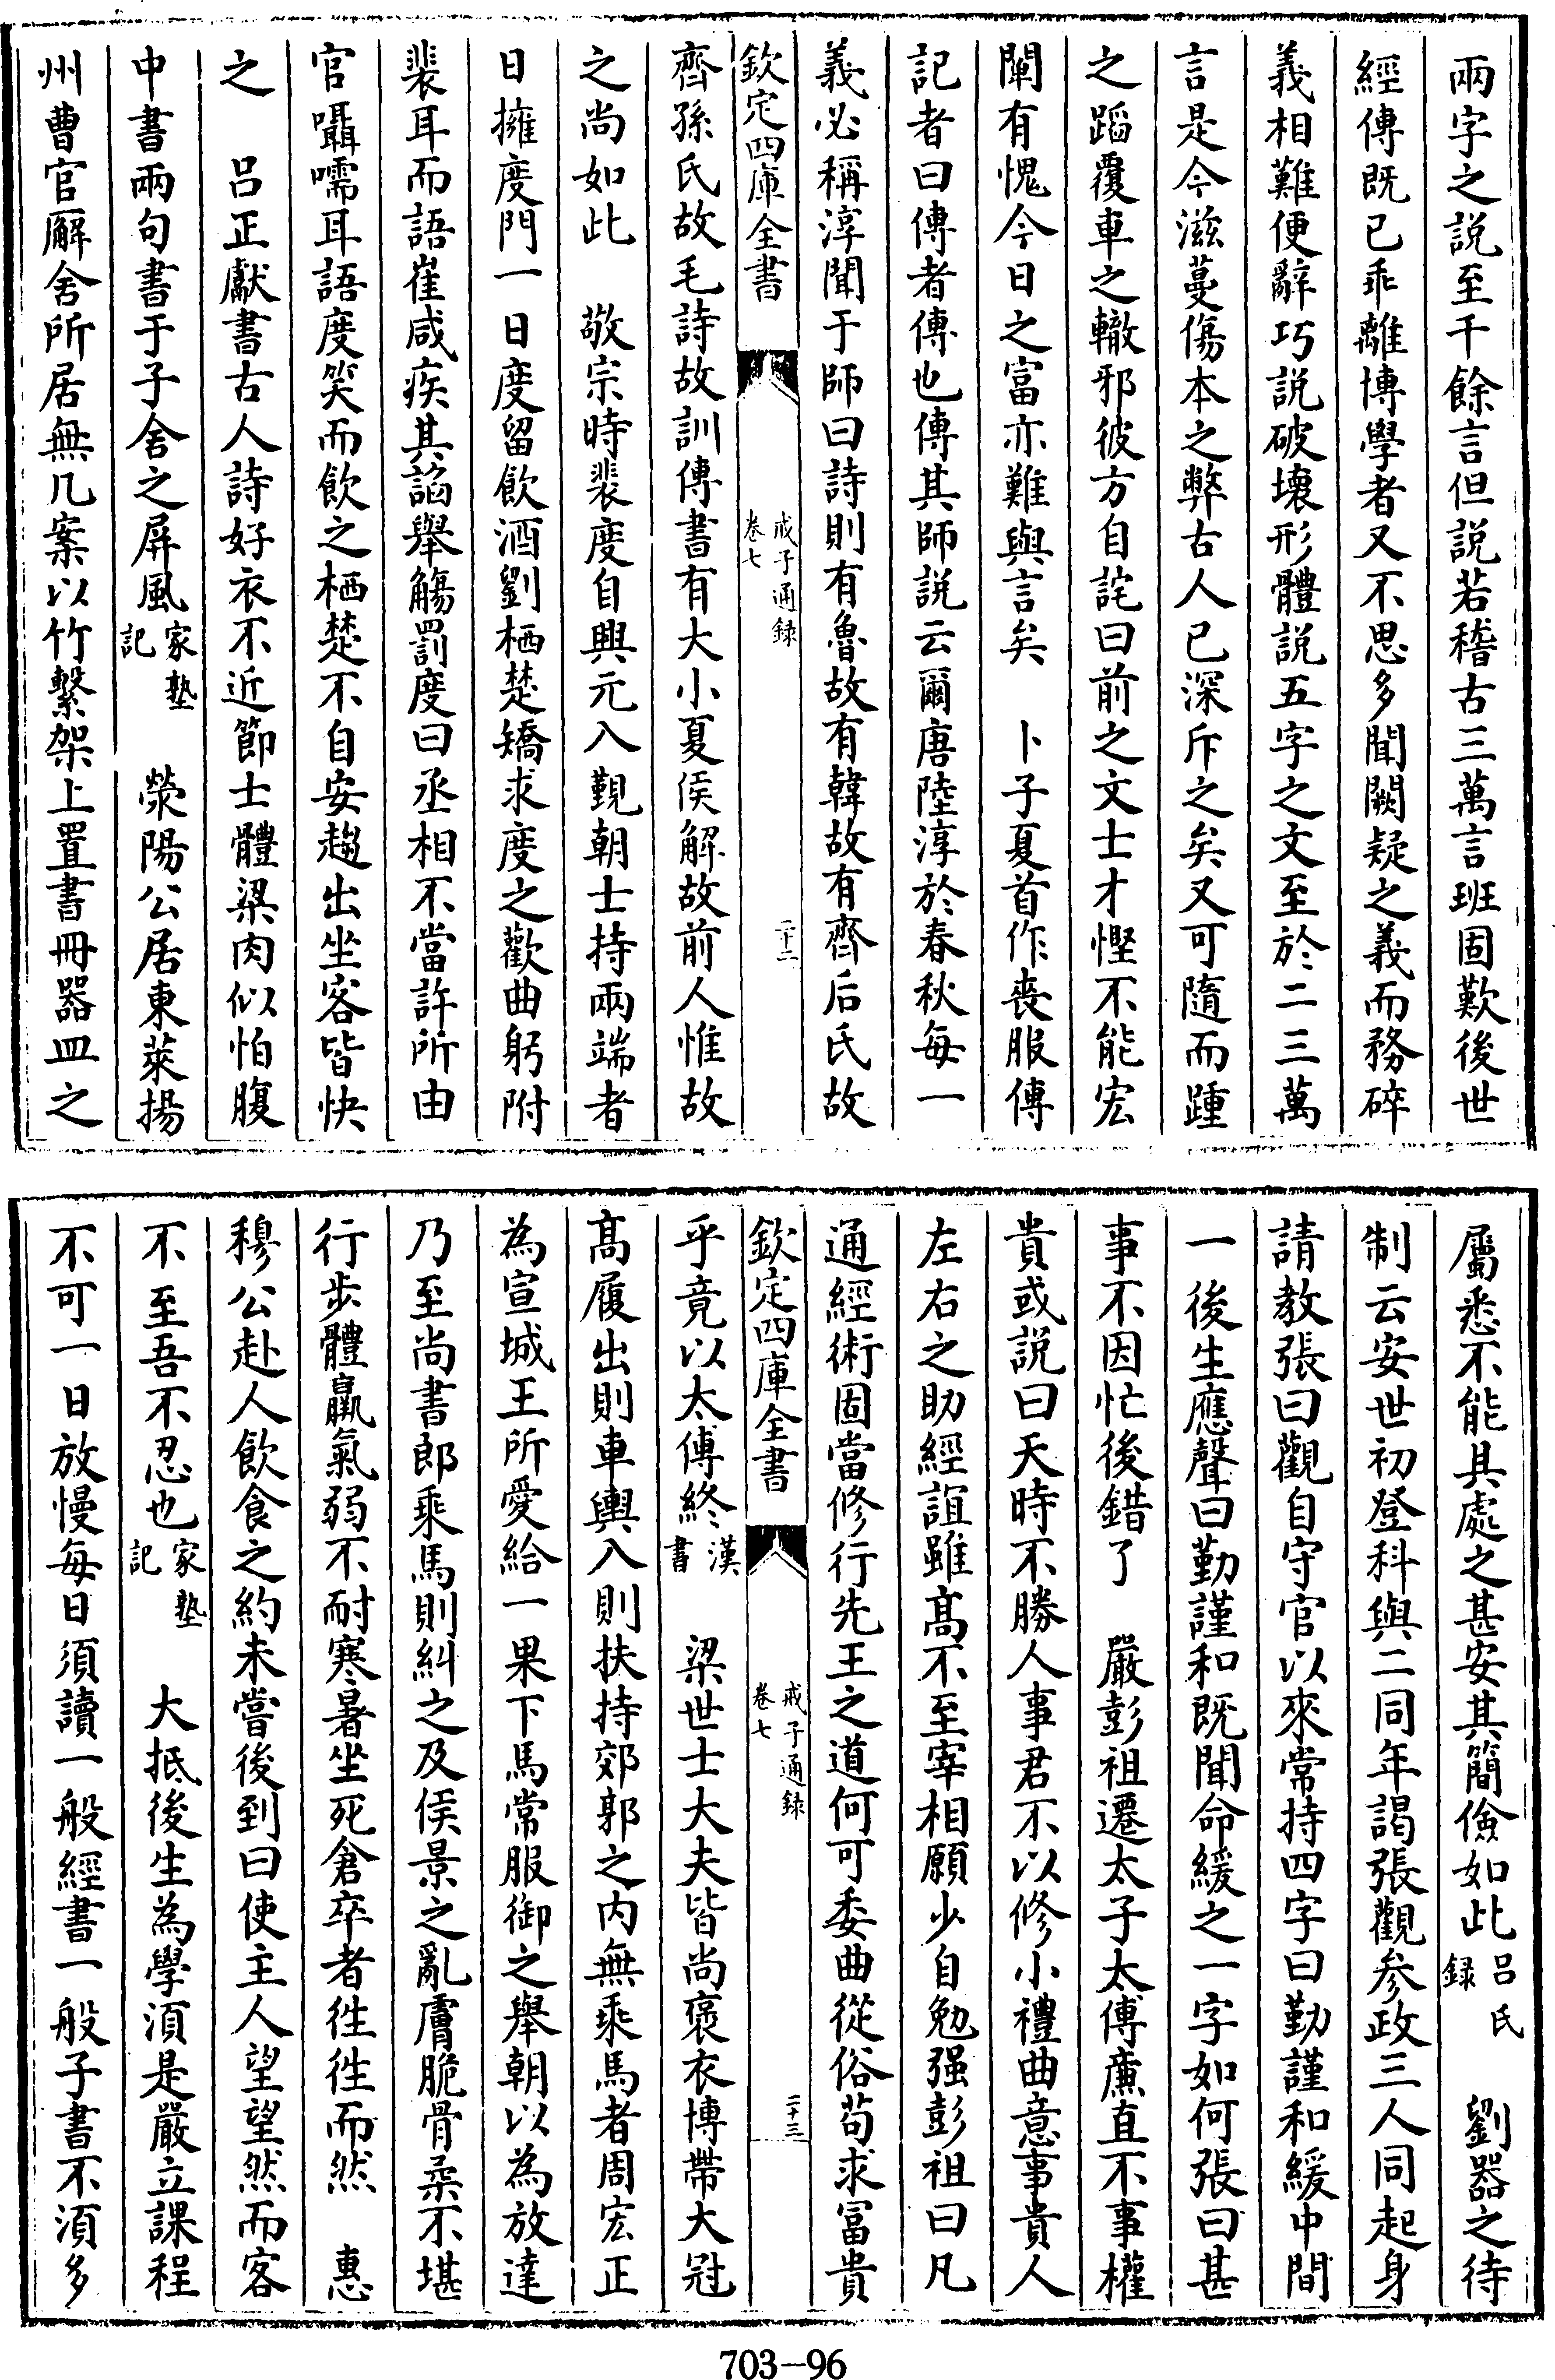 兩字之説至千餘言但説若稽古三萬言班固歎後世
經傳既已乖離博學者又不思多聞闕疑之義而務碎
義相難便辭巧説破壞形體説五字之文至於二三萬
言是今滋蔓傷本之弊古人已深斥之矣又可隨而踵
之蹈覆車之轍邪彼方自詫曰前之文士才慳不能宏
闡有愧今日之富亦難與言矣　卜子夏首作喪服傳
記者曰傳者傳也傳其師説云爾唐陸淳於春秋每一
義必稱淳聞于師曰詩則有魯故有韓故有齊后氏故
欽定四庫全書　戒子通録卷七　二十二
齊孫氏故毛詩故訓傳書有大小夏侯解故前人惟故
之尚如此　敬宗時裴度自興元入覲朝士持兩端者
日擁度門一日度留飲酒劉栖楚矯求度之歡曲躬附
裴耳而語崔咸疾其諂舉觴罰度曰丞相不當許所由
官囁嚅耳語度笑而飲之栖楚不自安趨出坐客皆快
之　吕正獻書古人詩好衣不近節士體梁肉似怕腹
中書兩句書于子舍之屏風家塾記　滎陽公居東萊揚
州曹官廨舍所居無几案以竹繫架上置書冊器皿之
屬悉不能具處之甚安其簡儉如此吕氏録　劉器之待
制云安世初登科與二同年謁張觀參政三人同起身
請教張曰觀自守官以來常持四字曰勤謹和緩中間
一後生應聲曰勤謹和既聞命緩之一字如何張曰甚
事不因忙後錯了　嚴彭祖遷太子太傅廉直不事權
貴或説曰天時不勝人事君不以修小禮曲意事貴人
左右之助經誼雖髙不至宰相願少自勉强彭祖曰凡
通經術固當修行先王之道何可委曲從俗苟求富貴
欽定四庫全書　戒子通録卷七　二十三
乎竟以太傅終漢書　梁世士大夫皆尚褒衣博帶大冠
髙履出則車輿入則扶持郊郭之内無乘馬者周宏正
為宣城王所愛給一果下馬常服御之舉朝以為放達
乃至尚書郎乘馬則糾之及侯景之亂膚脆骨柔不堪
行步體羸氣弱不耐寒暑坐死倉卒者徃徃而然　惠
穆公赴人飲食之約未嘗後到曰使主人望望然而客
不至吾不忍也家塾記　大抵後生為學須是嚴立課程
不可一日放慢每日須讀一般經書一般子書不須多
703-96